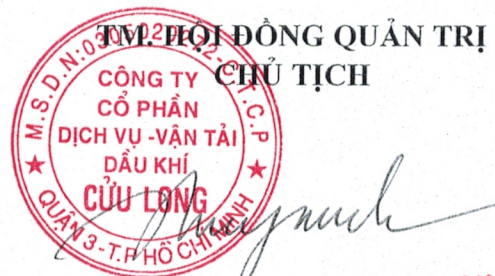 TM. HỘI ĐỒNG QUẢN TRỊ
CHỦ TỊCH
CÔNG TY
CỔ PHẦN
DỊCH VỤ -VẬN TẢI
DẦU KHÍ
CỬU LONG
QUẬN 3 - T.P HỒ CHÍ MINH